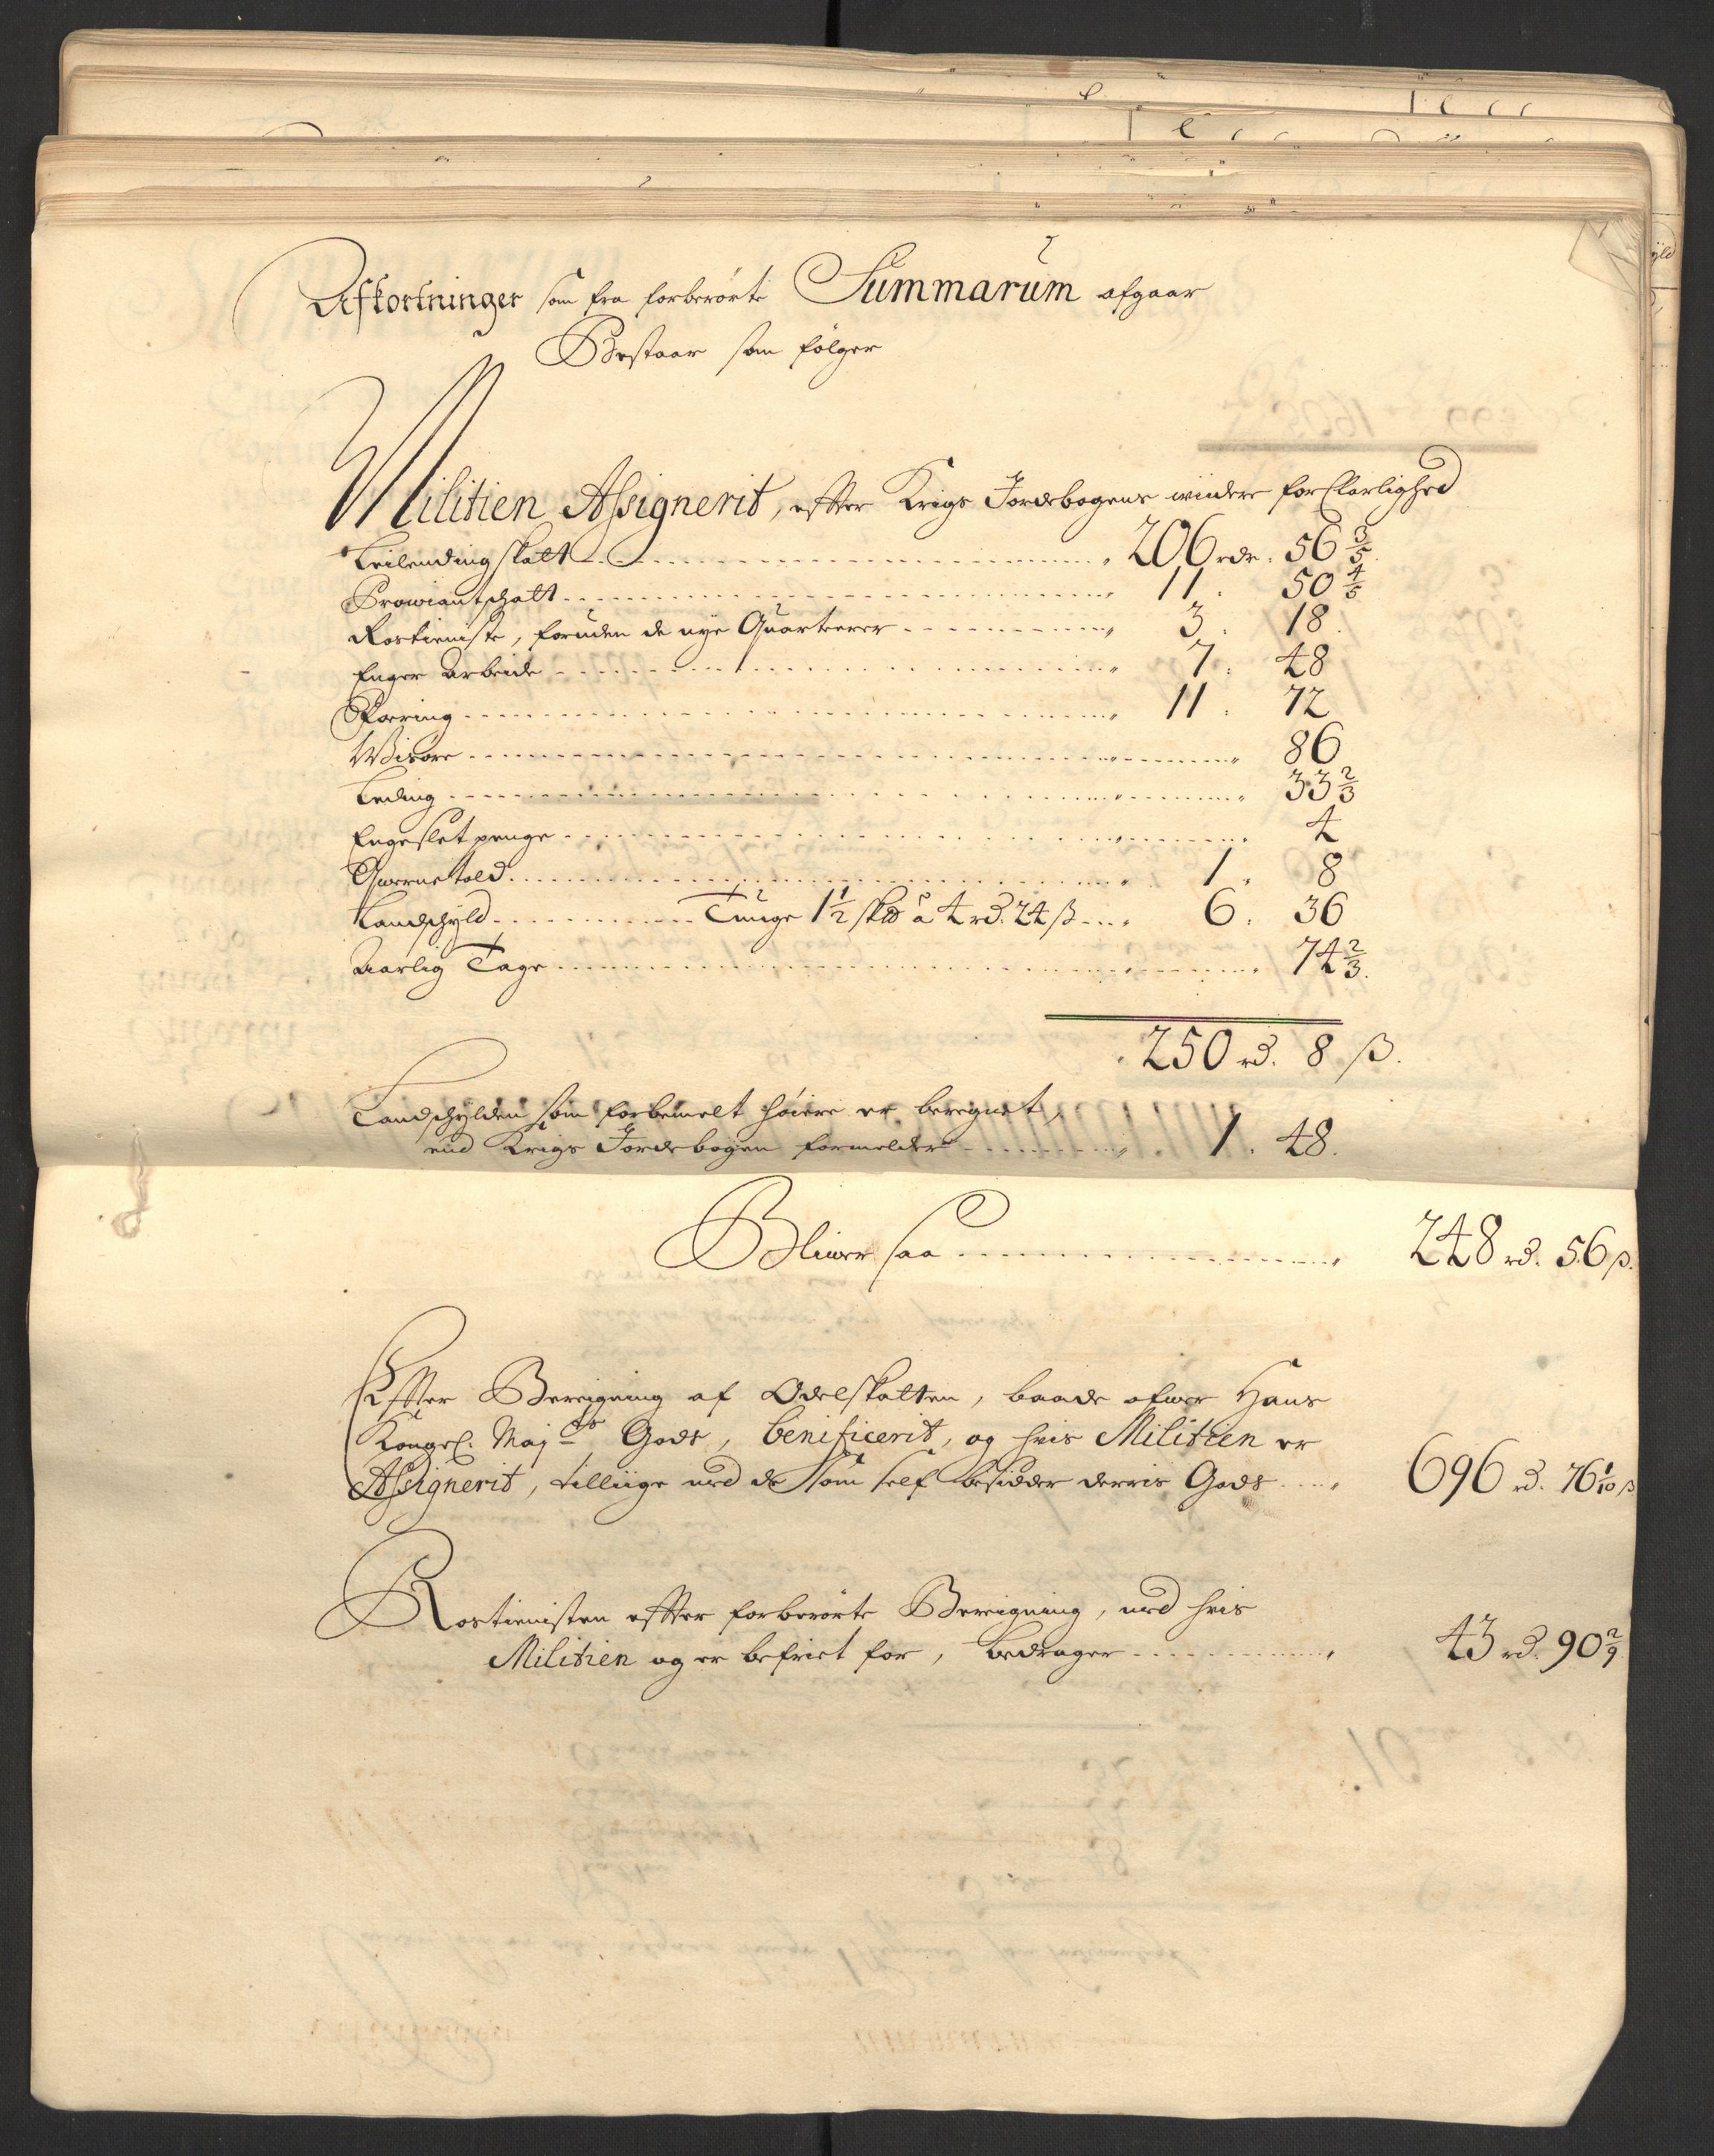 Afkortninger som fra forberørte Summarum afgaar
Bestaar som følger
Militien Assignerit, effter Krigs Jordebogens widere forklarlighed
Leilendingskatt 206 rdr. 56 3/5.
Prowiantschatt 11. 50 4/5
Rostieniste, foruden de nye Quarterer 3. 18.
Enger Arbeide 7. 48
Foering 11. 72
Wisøre 86
Leding 33 2/3
Engeslet penge 4
Qwernetold 1. 8
Landschyld Tunge 1 1/2 skld à 4 rd. 24 ß 6. 36
Aarlig Tage 74 2/3.
250 rd. 8 ß.
Landschylden som forbemelt høiere er beregnet,
end Krigs Jordebogen formelder 1. 48.
Bliwer saa 248 rd. 56 ß.
Effter Beregning af Odelskatten, baade ofwer Hans
Kongel. Maj ts Gods, benificerit, og hvis Militien er
Assignerit, tilliige med de som self besidder derris Gods 696 rd. 76 1/10 ß
Rostienisten effter forberørte Beregning, med hvis
Militien og er befriet for, bedrager 43 rd. 90 2/9